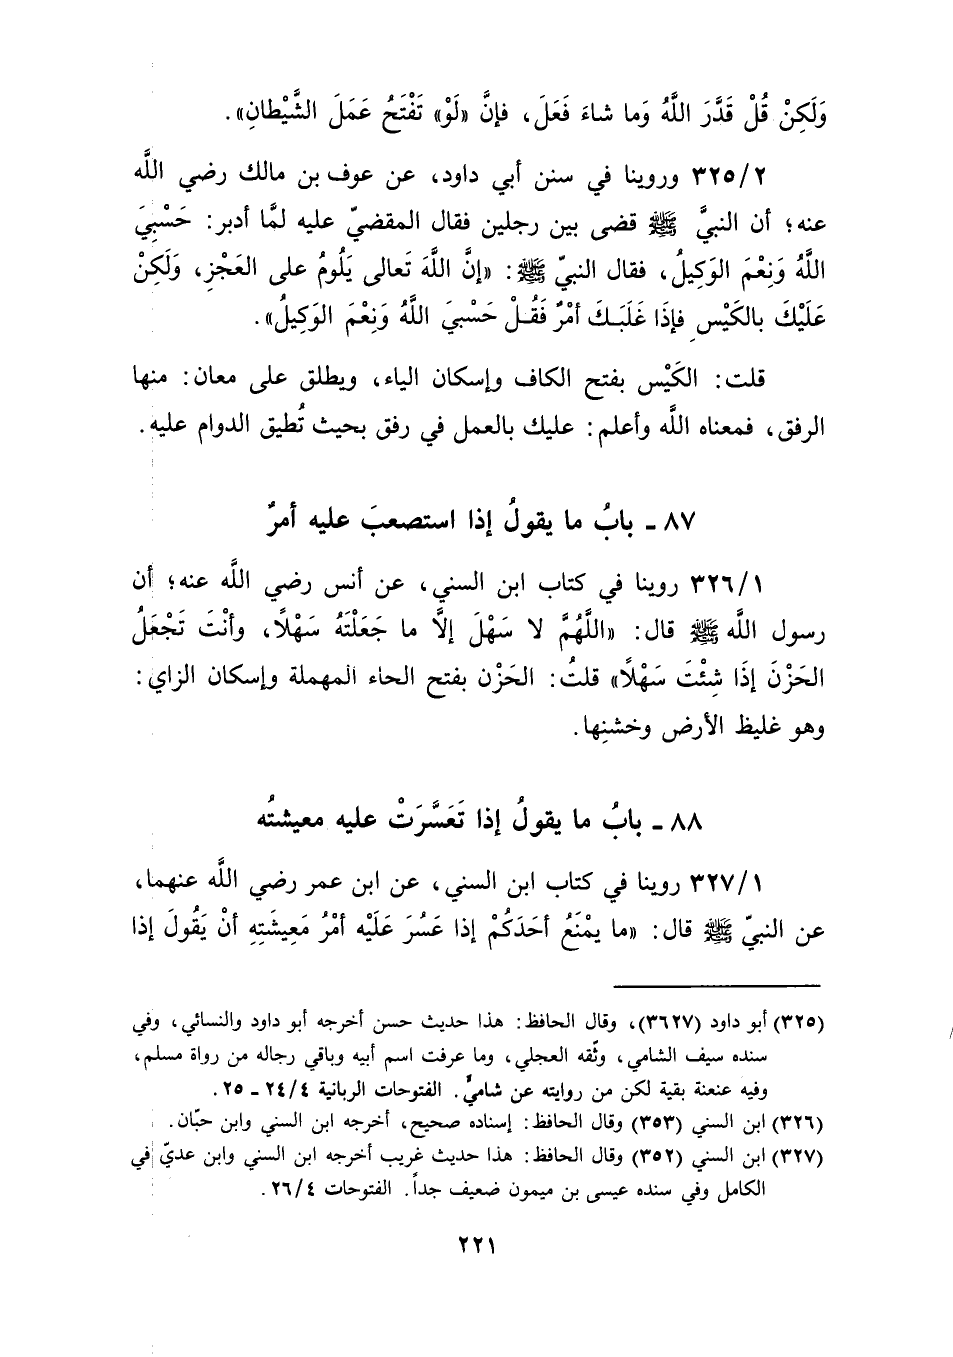 وَلَكِنْ قُلْ قَدَّرَ اللَّهُ وَما شاءَ فَعَلَ، فإنَّ «لَوْ» تَفْتَحُ عَمَلَ الشَّيْطانِ».
٣٢٥/٢ وروينا في سنن أبي داود، عن عوف بن مالك رضي اللَّه
عنه؛ أن النبيَّ ﷺ قضى بين رجلين فقال المقضيّ عليه لمَّا أدبر: حَسْبِيَ
اللَّهُ وَنِعْمَ الوَكِيلُ، فقال النبيّ ﷺ: «إنَّ اللَّهَ تَعالى يَلُومُ على العَجْزِ، وَلَكِنْ
عَلَيْكَ بالكَيْسِ فإذَا غَلَبَكَ أمْرٌ فَقُلْ حَسْبِيَ اللَّهُ وَنِعْمَ الوَكِيلُ».
قلت: الكَيْس بفتح الكاف وإسكان الياء، ويطلق على معان: منها
الرفق، فمعناه اللَّه وأعلم: عليك بالعمل في رفق بحيث تُطيق الدوام عليه.
٨٧ ـ بابُ ما يقولُ إذا استصعبَ عليه أمرٌ
٣٢٦/١ روينا في كتاب ابن السني، عن أنس رضي اللَّه عنه؛ أن
رسول اللَّه ﷺ قال: «اللَّهُمَّ لا سَهْلَ إلاَّ ما جَعَلْتَهُ سَهْلاً، وأنْتَ تَجْعَلُ
الحَزْنَ إذَا شِئْتَ سَهْلاً» قلتُ: الحَزْن بفتح الحاء المهملة وإسكان الزاي:
وهو غليظ الأرض وخشنِها.
٨٨ ـ بابُ ما يقولُ إذا تَعَسَّرَتْ عليه معيشتُه
٣٢٧/١ روينا في كتاب ابن السني، عن ابن عمر رضي اللَّه عنهما،
عن النبيّ ﷺ قال: «ما يمْنَعُ أحَدَكُمْ إذا عَسُرَ عَلَيْه أمْرُ مَعِيشَتِهِ أنْ يَقُولَ إذا
(٣٢٥) أبو داود (٣٦٢٧)، وقال الحافظ: هذا حديث حسن أخرجه أبو داود والنسائي، وفي
سنده سيف الشامي، وثّقه العجلي، وما عرفت اسم أبيه وباقي رجاله من رواة مسلم،
وفيه عنعنة بقية لكن من روايته عن شاميّ. الفتوحات الربانية ٢٤/٤ ـ ٢٥.
(٣٢٦) ابن السني (٣٥٣) وقال الحافظ: إسناده صحيح، أخرجه ابن السني وابن حبّان.
(٣٢٧) ابن السني (٣٥٢) وقال الحافظ: هذا حديث غريب أخرجه ابن السني وابن عديّ في
الكامل وفي سنده عيسى بن ميمون ضعيف جداً. الفتوحات ٢٦/٤.
٢٢١